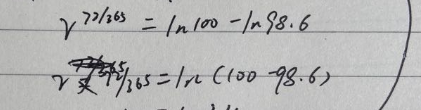 r^72/365 = ln100 - ln98.6
r^72/365 = ln(100-98.6)